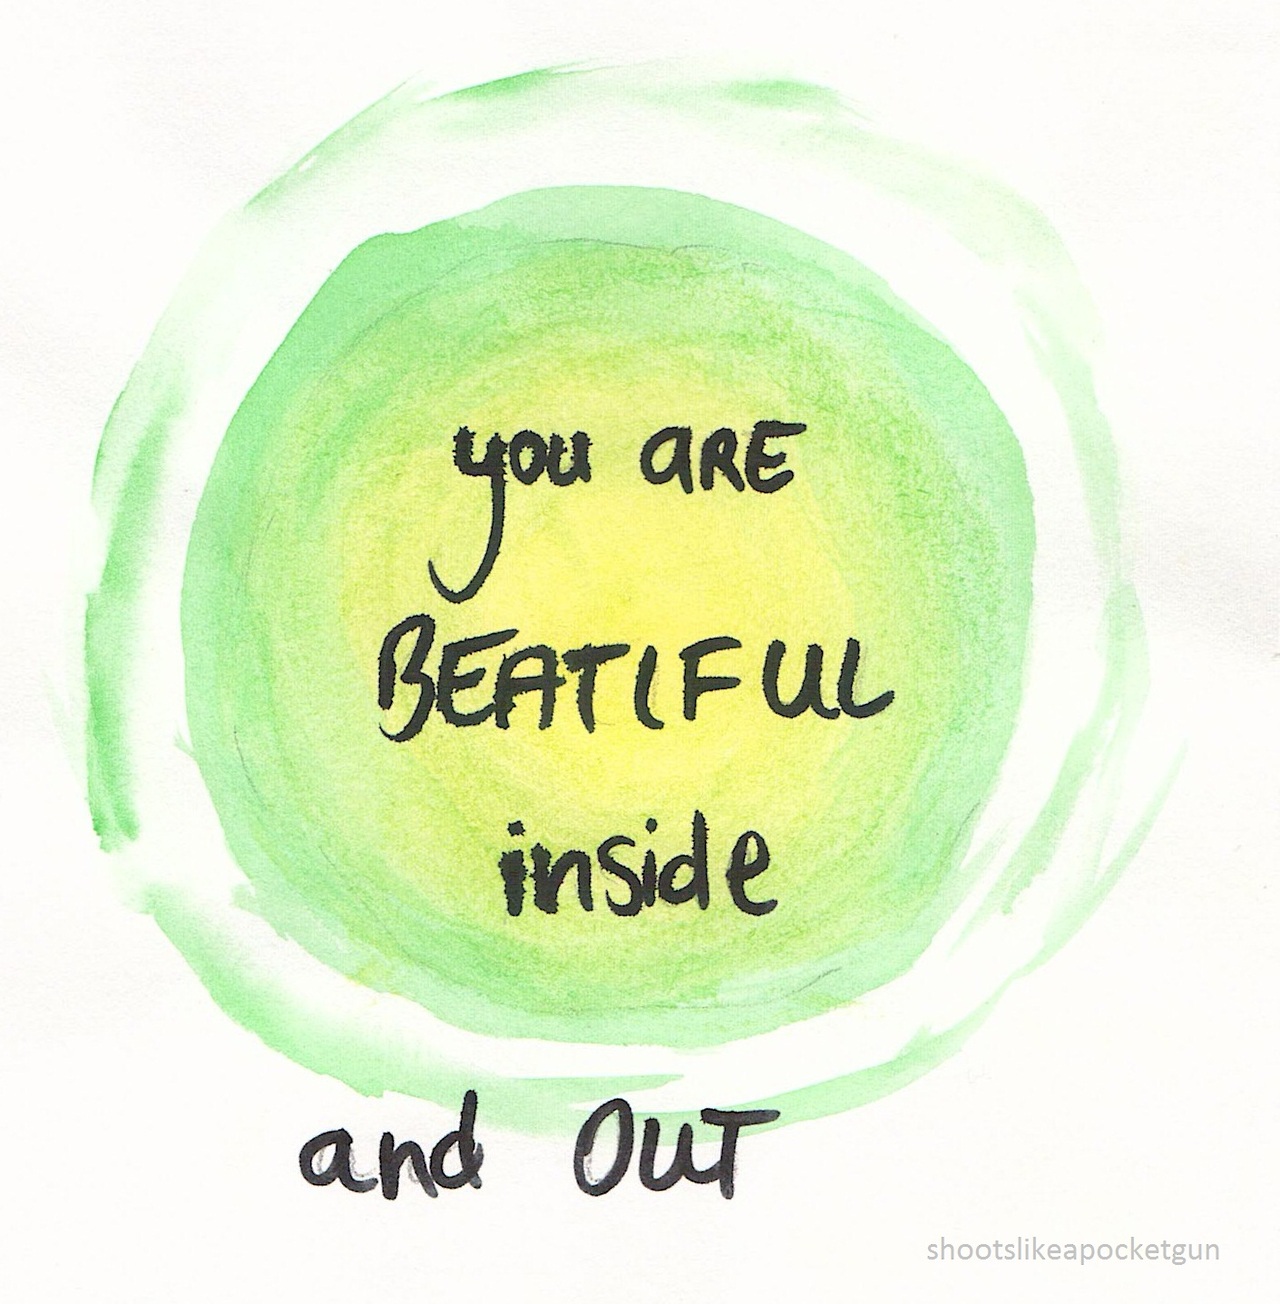 you aRE
BEATIFUL
inside
and OUT
shootslikeapocketgun